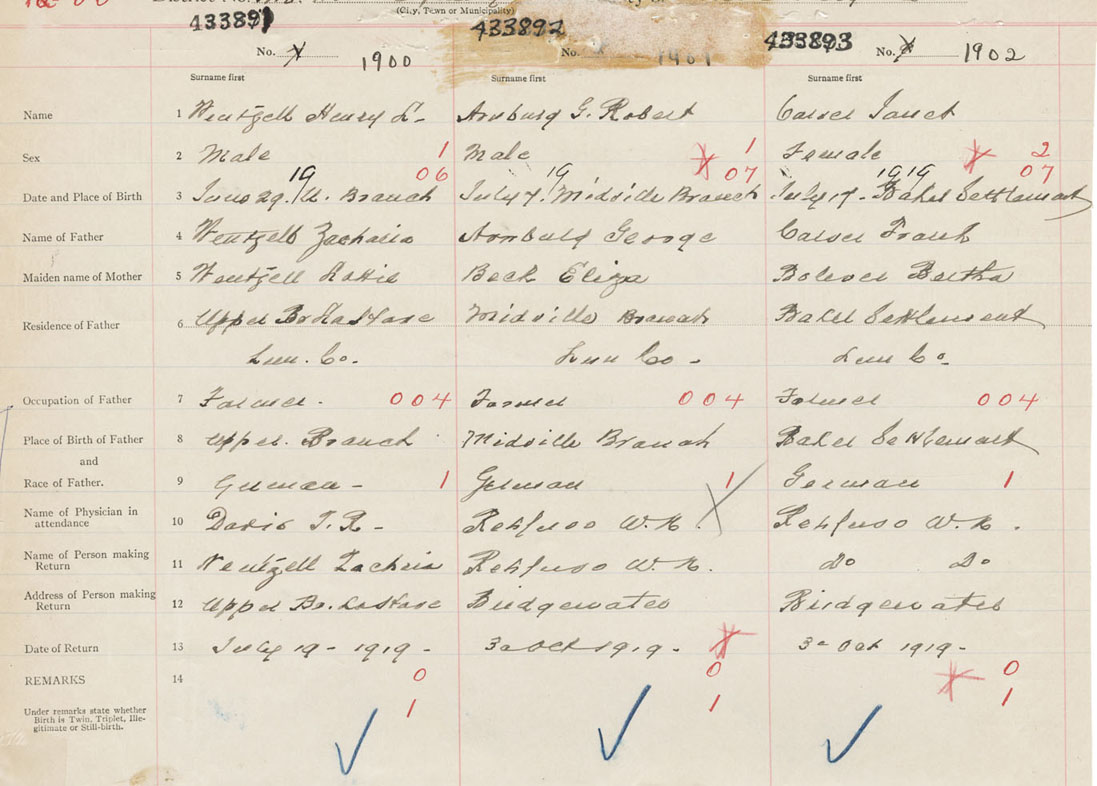 (City, Town or Municipality)
433891 433892 433893
No. 1900 No. 1901 No. 1902
Surname first Surname first Surname first
Name 1 Wentzell Henry L- Arnburg G. Robert Carver Janet
Sex 2 Male 1 Male 1 Female 2
19 06 19 07 1919 07
Date and Place of Birth 3 June 29. U. Branch July 7. Midville Branch July 17. Baker Settlement
Name of Father 4 Wentzell Zacharia Arnburg George Carver Frank
Maiden name of Mother 5 Wentzell Beck Eliza Bertha
Residence of Father 6 Upper Br LaHave Midville Branch Baker Settlement
Lun. Co. Lun Co. Lun Co.
Occupation of Father 7 Farmer. 004 Farmer 004 Farmer 004
Place of Birth of Father 8 Upper. Branch Midville Branch Baker Settlement
and
Race of Father. 9 German 1 German 1 German 1
Name of Physician in
attendance 10 Davis T.R- Rehfuss W.N. Rehfuss W.N.
Name of Person making
Return 11 Wentzell Zacharia Rehfuss W.N. Do Do
Address of Person making
Return 12 Upper Br. LaHave Bridgewater Bridgewater
Date of Return 13 July 19- 1919- 3 Oct 1919- 3 Oct 1919-
REMARKS 14 0 0 0
Under remarks state whether
Birth is Twin, Triplet, Ille-
gitimate or Still-birth. 1 1 1